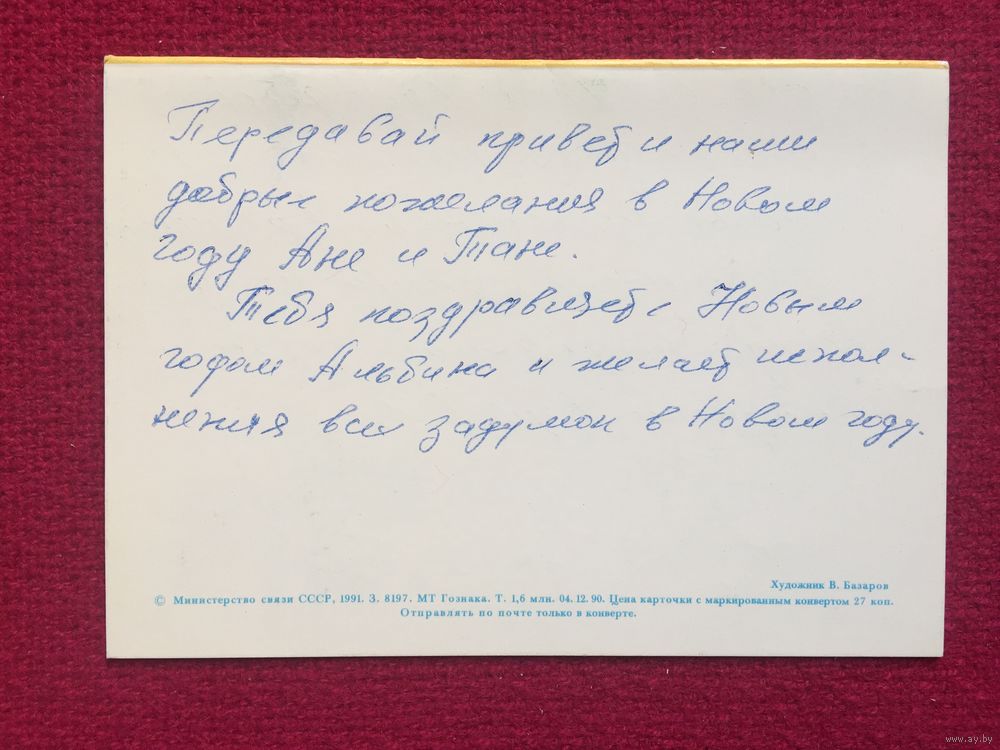 Передавай привет и наши
добрые пожелания в Новом
году Ане и Тане.
Тебя поздравляет с Новым
годом Альбина и желает испол-
нения всех задумок в Новом году.
Художник В. Базаров
© Министерство связи СССР, 1991. З. 8197. МТ Гознака. Т. 1,6 млн. 04.12.90. Цена карточки с маркированным конвертом 27 коп.
Отправлять по почте только в конверте.
www.ay.by